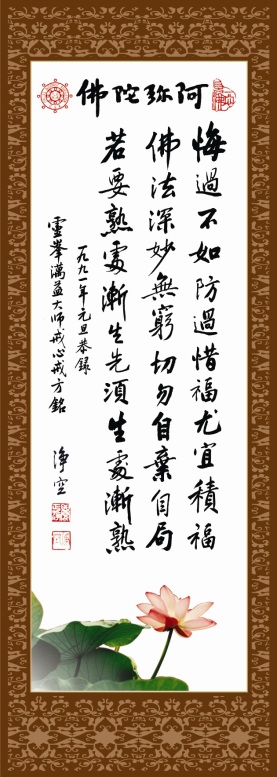 阿弥陀佛
悔過不如防過惜福尤宜積福
佛法深妙無窮切勿自棄自局
若要熟處漸生先須生處漸熟
一九九一年元旦恭錄
靈峯蕅益大师戒心戒方銘
淨空